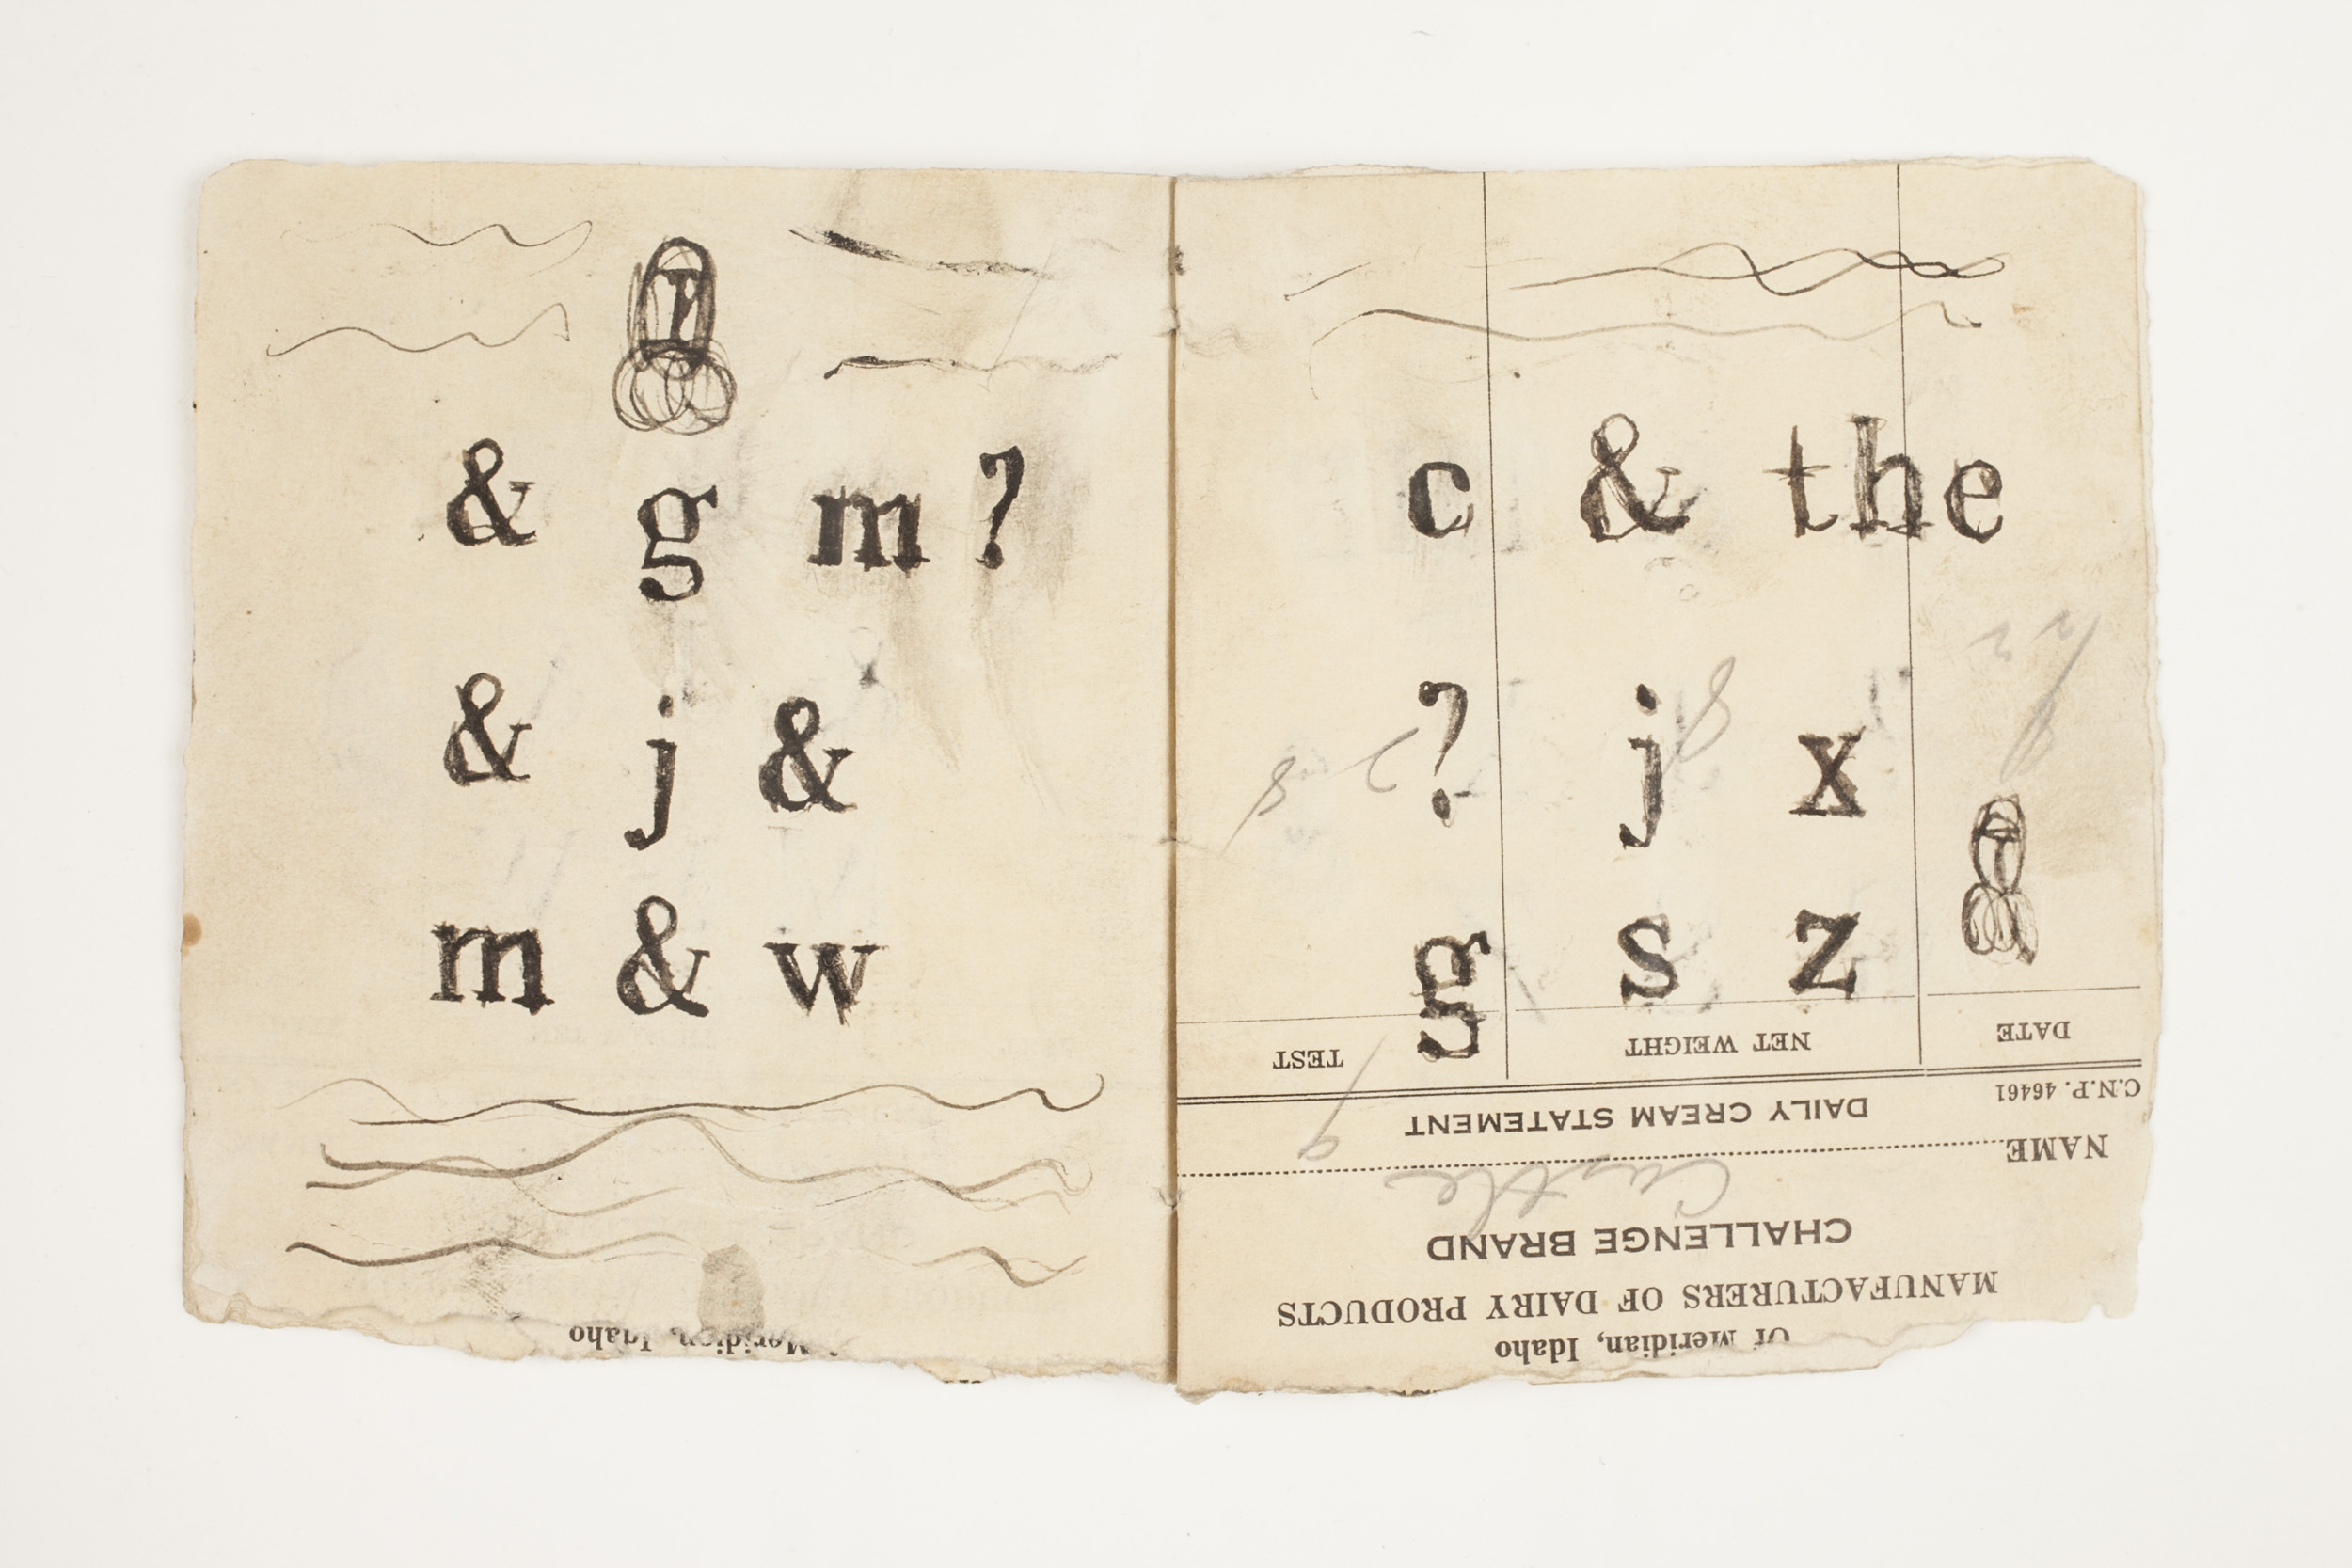 & g m ?
& j &
m & w
Meridian, Idaho
c & the
? j x
g s z
TEST NET WEIGHT DATE
C.N.P. 46461
DAILY CREAM STATEMENT
NAME
Castle
CHALLENGE BRAND
MANUFACTURERS OF DAIRY PRODUCTS
Of Meridian, Idaho